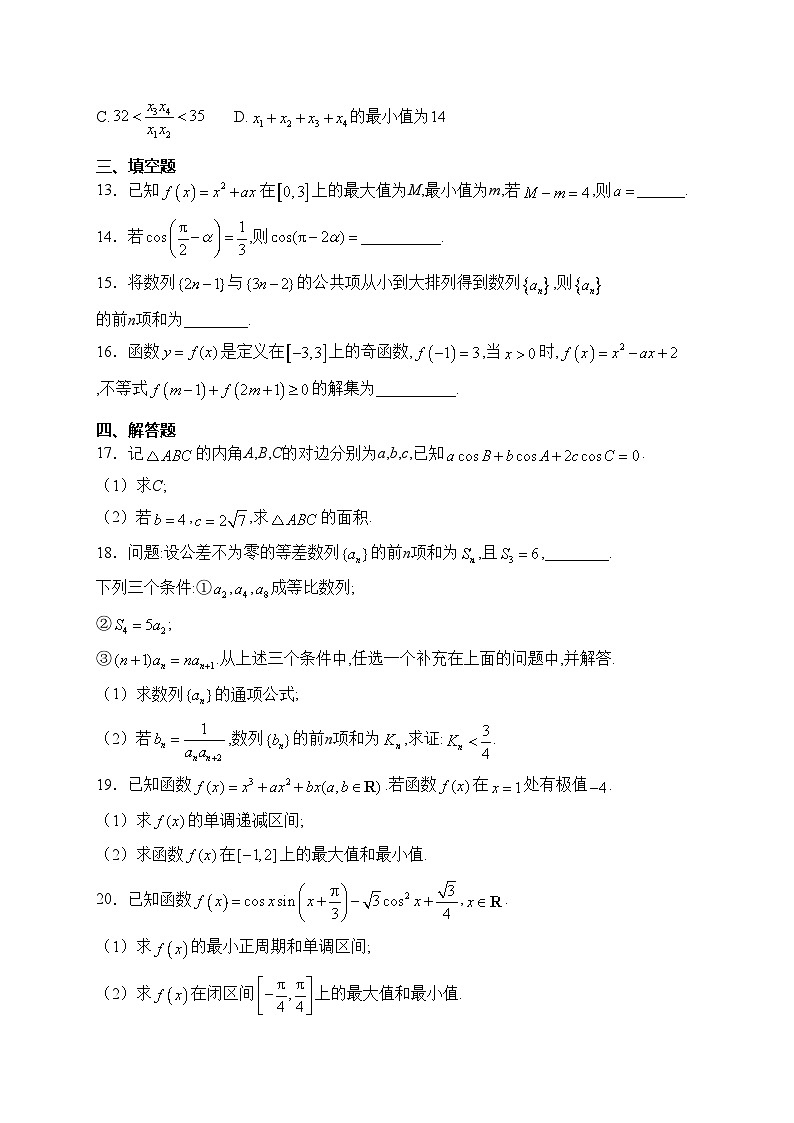 C. 32 < x₃x₄/(x₁x₂) < 35  D. x₁ + x₂ + x₃ + x₄的最小值为14
三、填空题
13. 已知 f(x) = x² + ax 在[0,3]上的最大值为M,最小值为m,若 M − m = 4 ,则 a = ______.
14. 若cos(π/2 − α) = 1/3 ,则cos(π − 2α) = __________.
15. 将数列{2n−1}与{3n−2}的公共项从小到大排列得到数列{aₙ},则{aₙ}
的前n项和为________.
16. 函数 y = f(x) 是定义在[−3,3]上的奇函数, f(−1) = 3 ,当 x > 0 时, f(x) = x² − ax + 2
,不等式 f(m−1) + f(2m+1) ≥ 0 的解集为__________.
四、解答题
17. 记△ABC 的内角A,B,C的对边分别为a,b,c,已知 a cos B + b cos A + 2c cos C = 0 .
(1)求C;
(2)若 b = 4 , c = 2√7 ,求△ABC 的面积.
18. 问题:设公差不为零的等差数列{aₙ}的前n项和为 Sₙ ,且 S₃ = 6 ,________.
下列三个条件:①a₂ , a₄ , a₈ 成等比数列;
②S₄ = 5a₂ ;
③(n+1)aₙ = naₙ₊₁ .从上述三个条件中,任选一个补充在上面的问题中,并解答.
(1)求数列{aₙ}的通项公式;
(2)若 bₙ = 1/(aₙaₙ₊₂) ,数列{bₙ}的前n项和为 Kₙ ,求证: Kₙ < 3/4 .
19. 已知函数 f(x) = x³ + ax² + bx(a,b ∈ R) .若函数 f(x) 在 x = 1 处有极值 −4 .
(1)求 f(x) 的单调递减区间;
(2)求函数 f(x) 在[−1,2]上的最大值和最小值.
20. 已知函数 f(x) = cos x sin(x + π/3) − √3 cos² x + √3/4 , x ∈ R .
(1)求 f(x) 的最小正周期和单调区间;
(2)求 f(x) 在闭区间[−π/4, π/4]上的最大值和最小值.